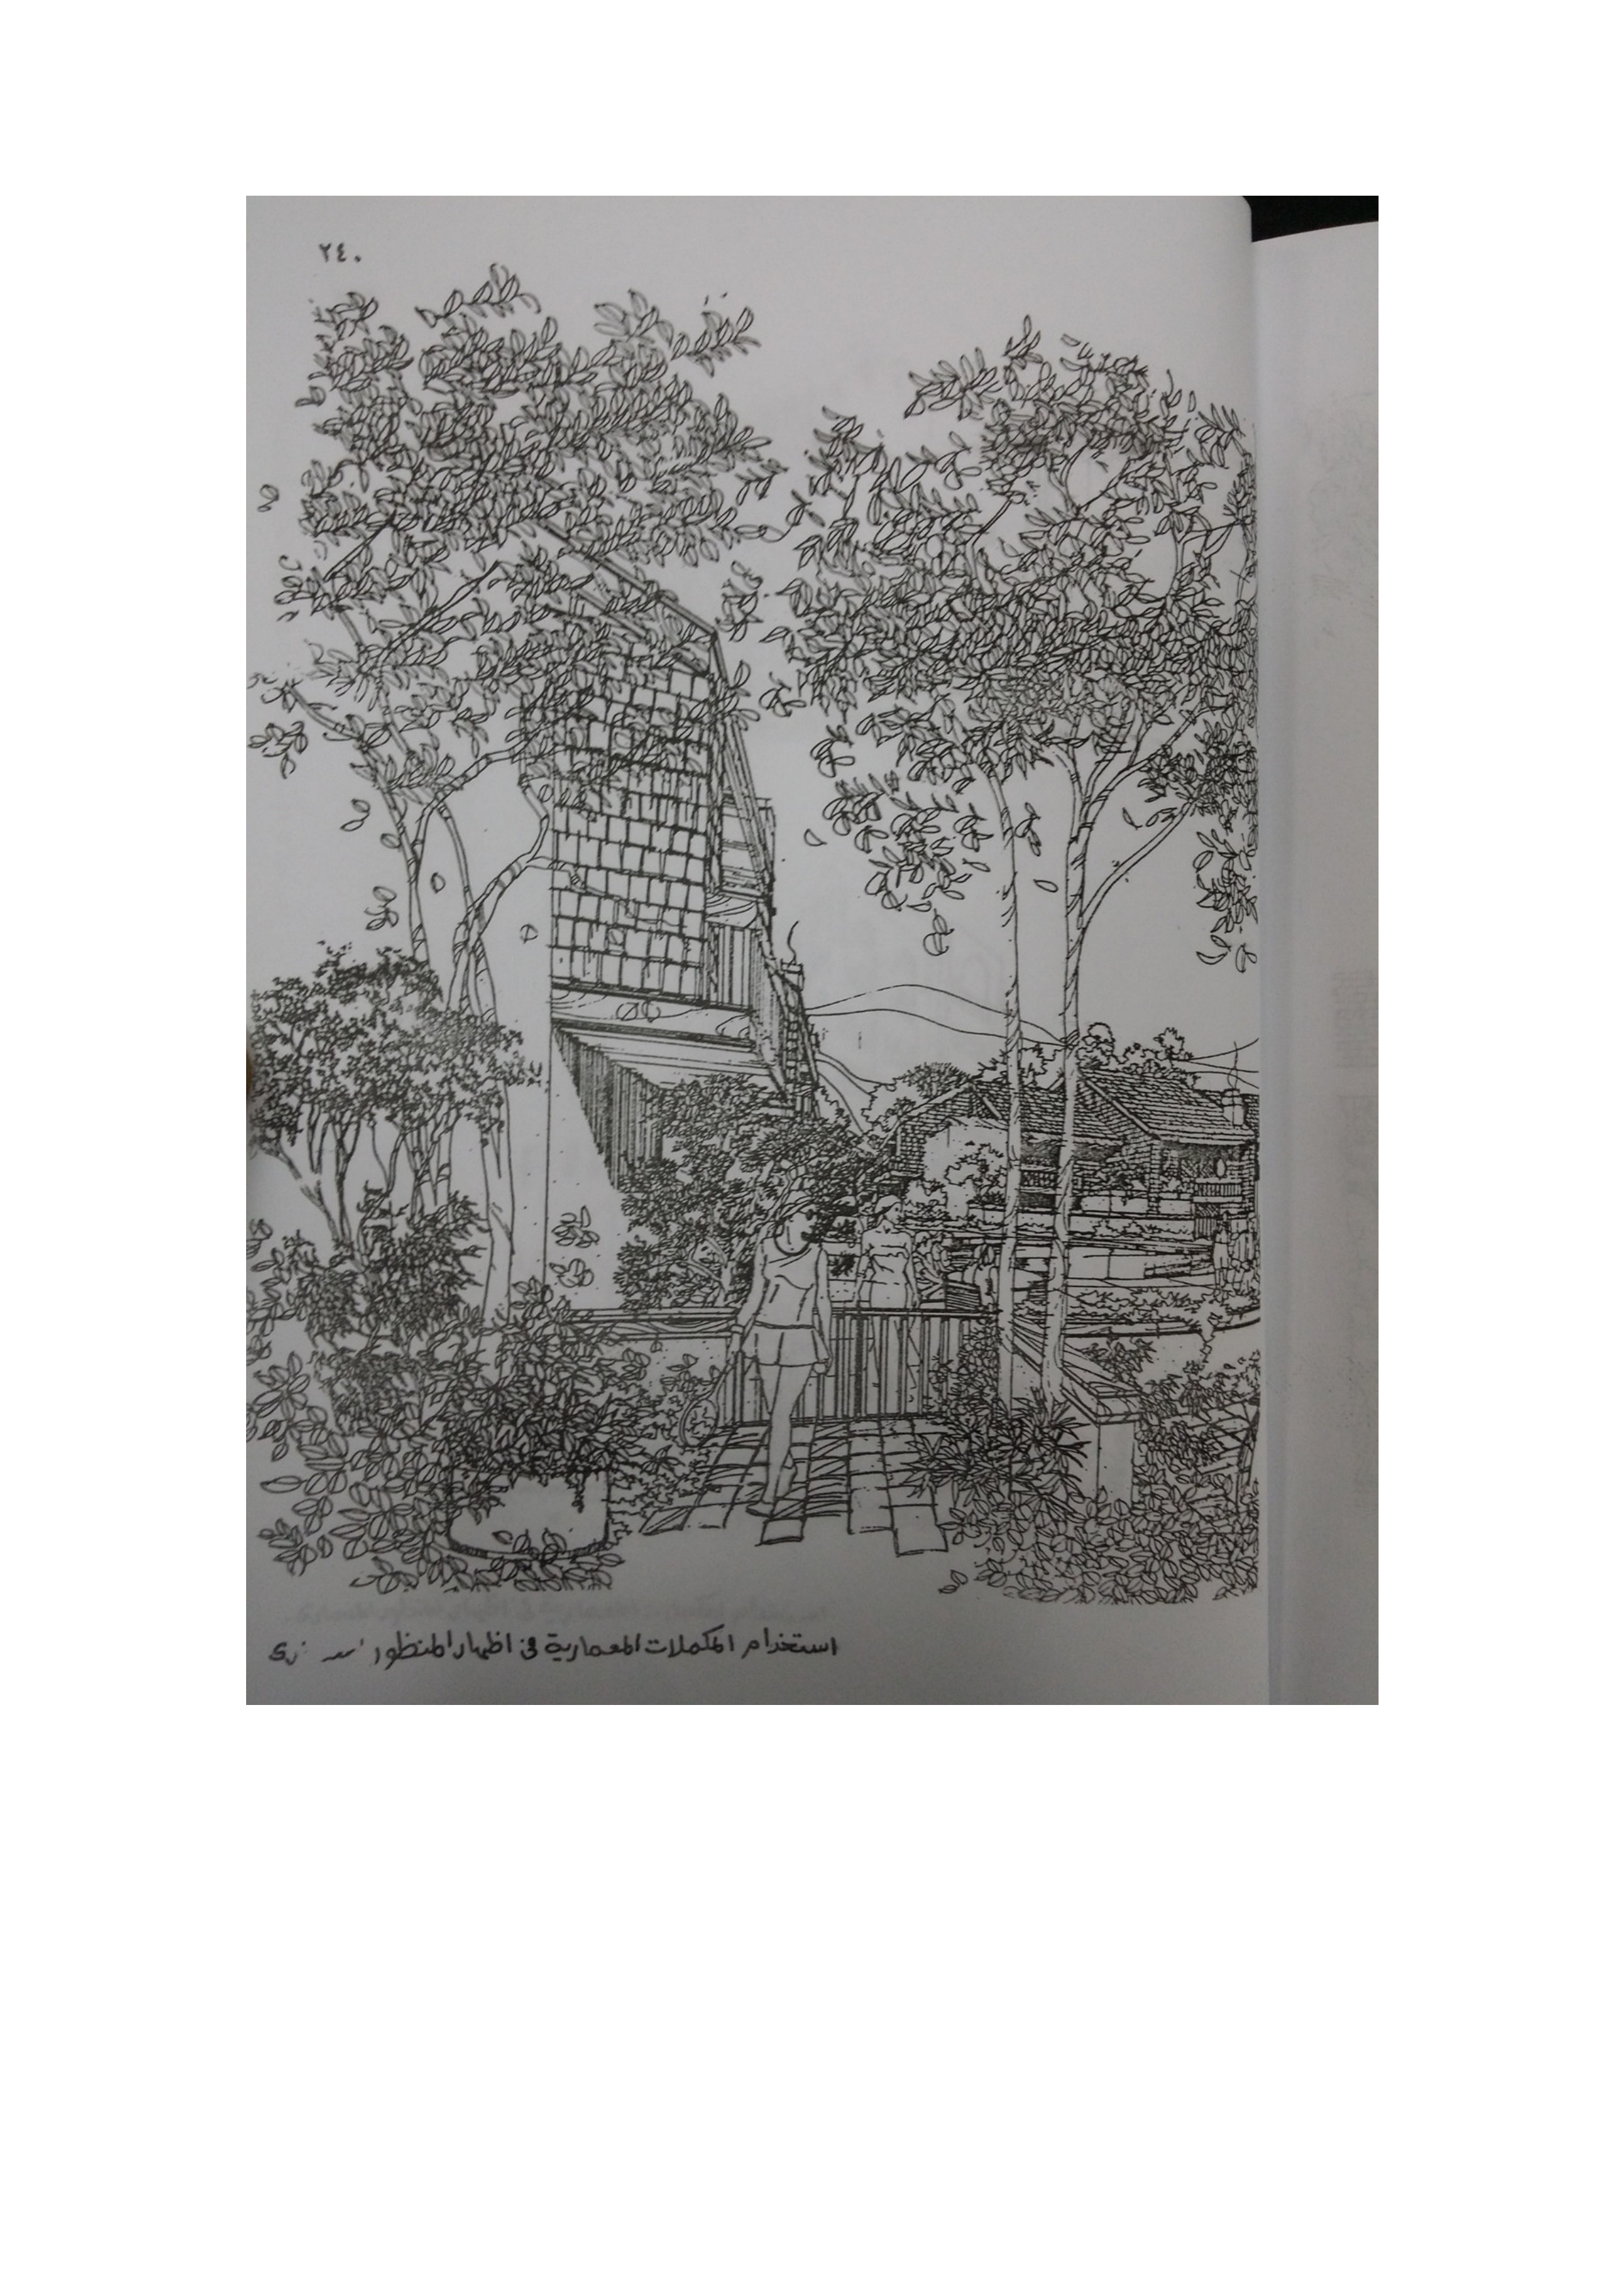 ٢٤٠
استخدام المكملات المعمارية فى اظهار المنظور